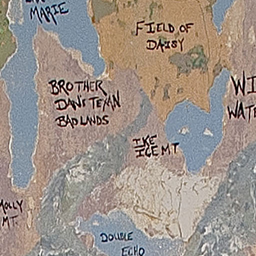 MARIE
FIELD OF
DAISY
BROTHER
DANSTEYAN
BADLANDS
WI
WATE
IKE
ICE MT
MOLLY
MT.
DOUBLE
ECHO